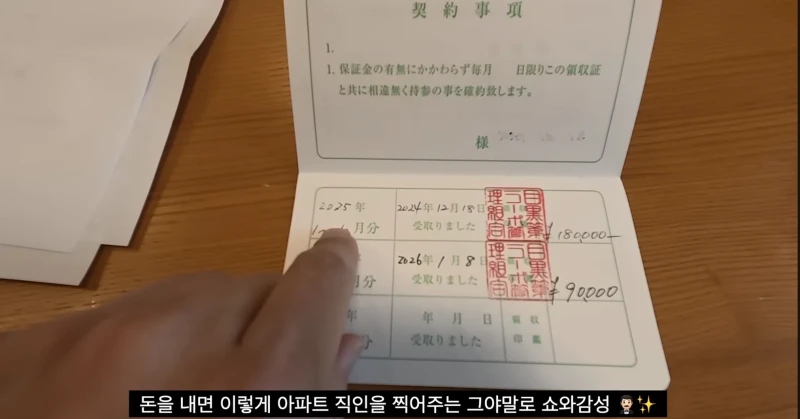 契約事項
1.
1. 保証金の有無にかかわらず毎月 日限りこの領収証
と共に相違無く持参の事を確約致します。
様
2025年
2024年12月18日
月分
受取りました
¥180,000-
目黒第
コーポ
理組合
2026年1月8日
月分
受取りました
¥90,000
目黒第
コーポ
理組合
年
年 月 日
領収
月分
受取りました
印鑑
돈을 내면 이렇게 아파트 직인을 찍어주는 그야말로 쇼와감성